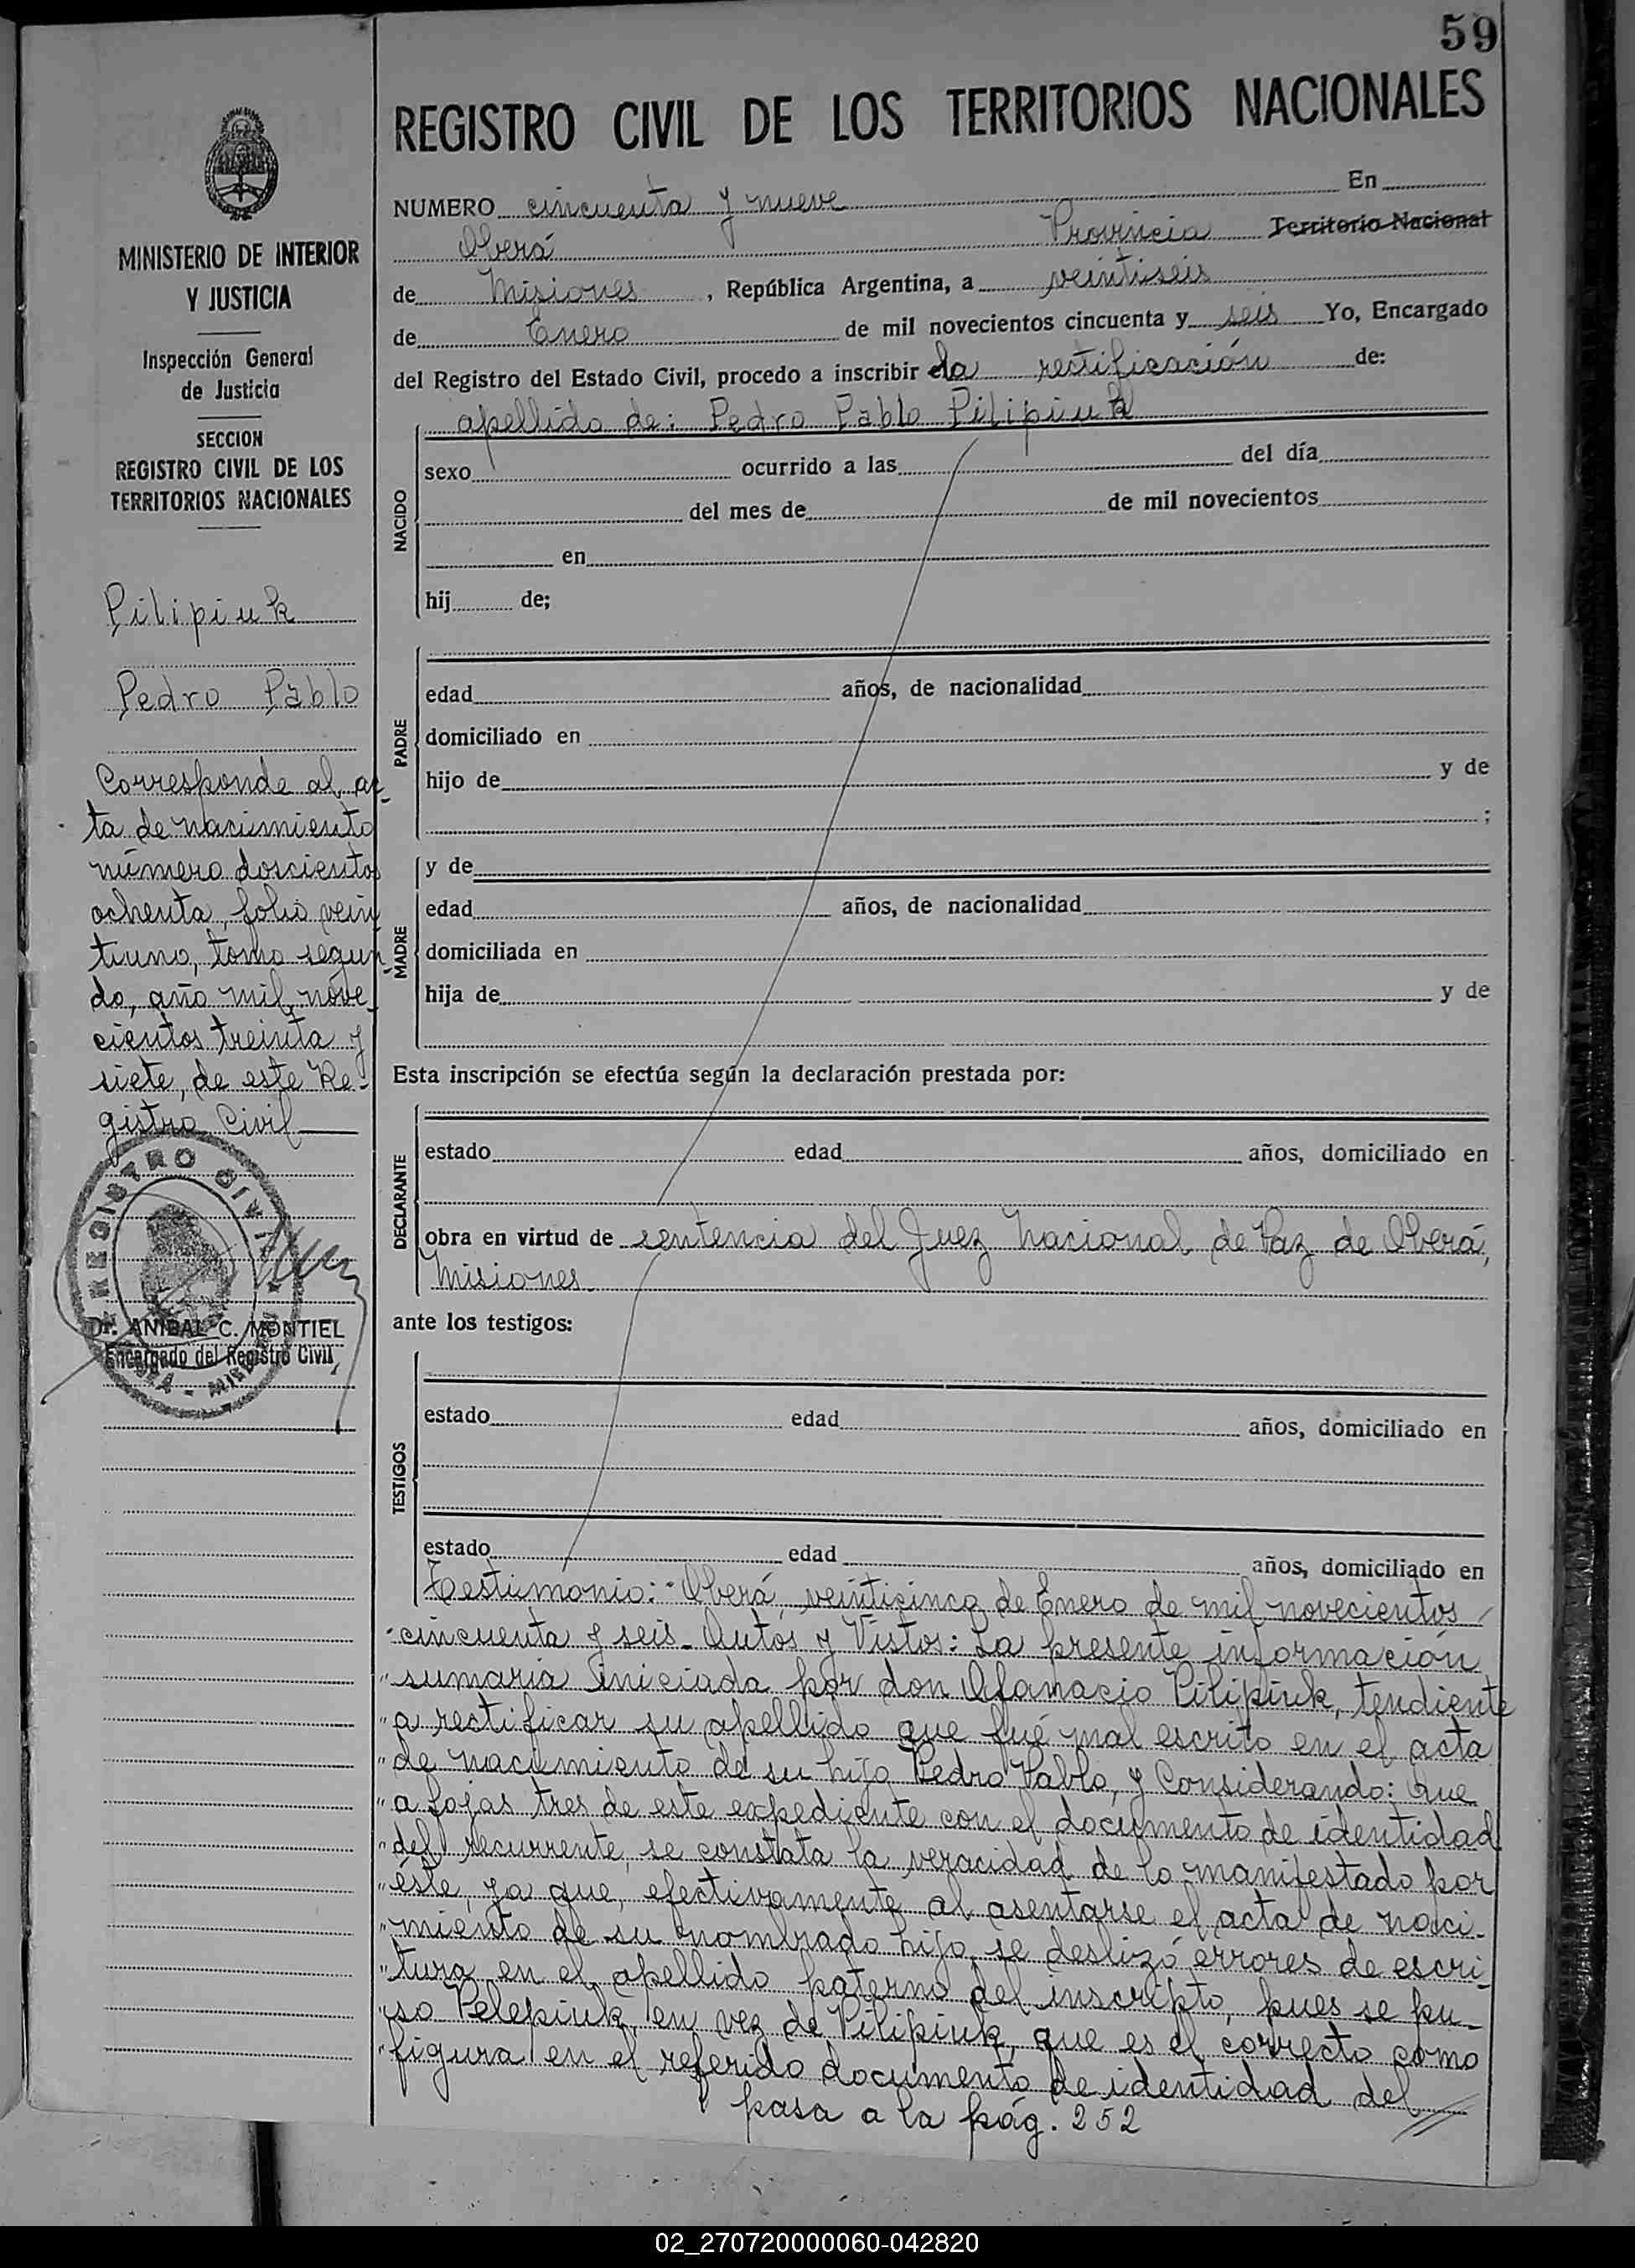 59
REGISTRO CIVIL DE LOS TERRITORIOS NACIONALES
MINISTERIO DE INTERIOR
Y JUSTICIA
Inspección General
de Justicia
SECCION
REGISTRO CIVIL DE LOS
TERRITORIOS NACIONALES
Pilipiuk
Pedro Pablo
Corresponde al ac-
ta de nacimiento
número doscientos
ochenta, folio vein
tiuno, tomo segun-
do, año mil nove-
cientos treinta y
siete, de este Re-
gistro Civil
REGISTRO CIVIL
Dr. ANIBAL C. MONTIEL
Encargado del Registro Civil
NUMERO cincuenta y nueve En
Oberá Provincia Territorio Nacional
de Misiones, República Argentina, a veintiseis
de Enero de mil novecientos cincuenta y seis Yo, Encargado
del Registro del Estado Civil, procedo a inscribir la rectificación de:
apellido de: Pedro Pablo Pilipiuk
NACIDO
sexo ocurrido a las del día
del mes de de mil novecientos
en
hij de;
PADRE
edad años, de nacionalidad
domiciliado en
hijo de y de
;
MADRE
y de
edad años, de nacionalidad
domiciliada en
hija de y de
Esta inscripción se efectúa según la declaración prestada por:
DECLARANTE
estado edad años, domiciliado en
obra en virtud de sentencia del Juez Nacional de Paz de Oberá,
Misiones.
ante los testigos:
TESTIGOS
estado edad años, domiciliado en
estado edad años, domiciliado en
Testimonio: "Oberá, veinticinco de Enero de mil novecientos
"cincuenta y seis. Autos y Vistos: La presente información
"sumaria iniciada por don Afanacio Pilipiuk, tendiente
"a rectificar su apellido que fué mal escrito en el acta
"de nacimiento de su hijo Pedro Pablo, y Considerando: Que
"a fojas tres de este expediente con el documento de identidad
"del recurrente, se constata la veracidad de lo manifestado por
"éste, ya que, efectivamente al asentarse el acta de naci-
"miento de su nombrado hijo, se deslizó errores de escri-
"tura en el apellido paterno del inscripto, pues se pu-
"so Pelepiuk, en vez de Pilipiuk, que es el correcto como
"figura en el referido documento de identidad del
pasa a la pág. 252
02_270720000060-042820